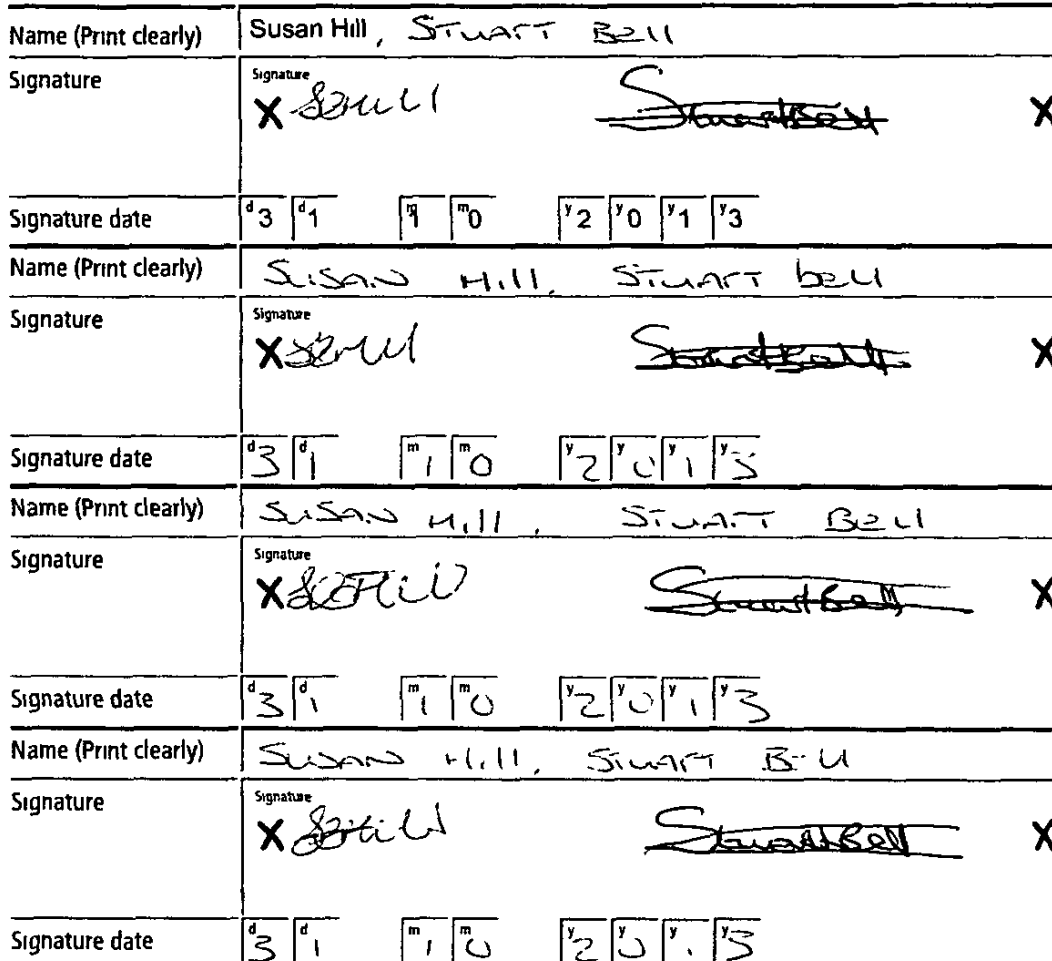 Name (Print clearly) Susan Hill, STUART Bell
Signature Signature
X X
Signature date d3 d1 m1 m0 y2 y0 y1 y3
Name (Print clearly) SUSAN Hill, STUART bell
Signature Signature
X Stuart Bell X
Signature date d3 d1 m1 m0 y2 y0 y1 y3
Name (Print clearly) SUSAN Hill, STUART Bell
Signature Signature
X Stuart Bell X
Signature date d3 d1 m1 m0 y2 y0 y1 y3
Name (Print clearly) SUSAN Hill, STUART Bell
Signature Signature
X Stuart Bell X
Signature date d3 d1 m1 m0 y2 y0 y1 y3